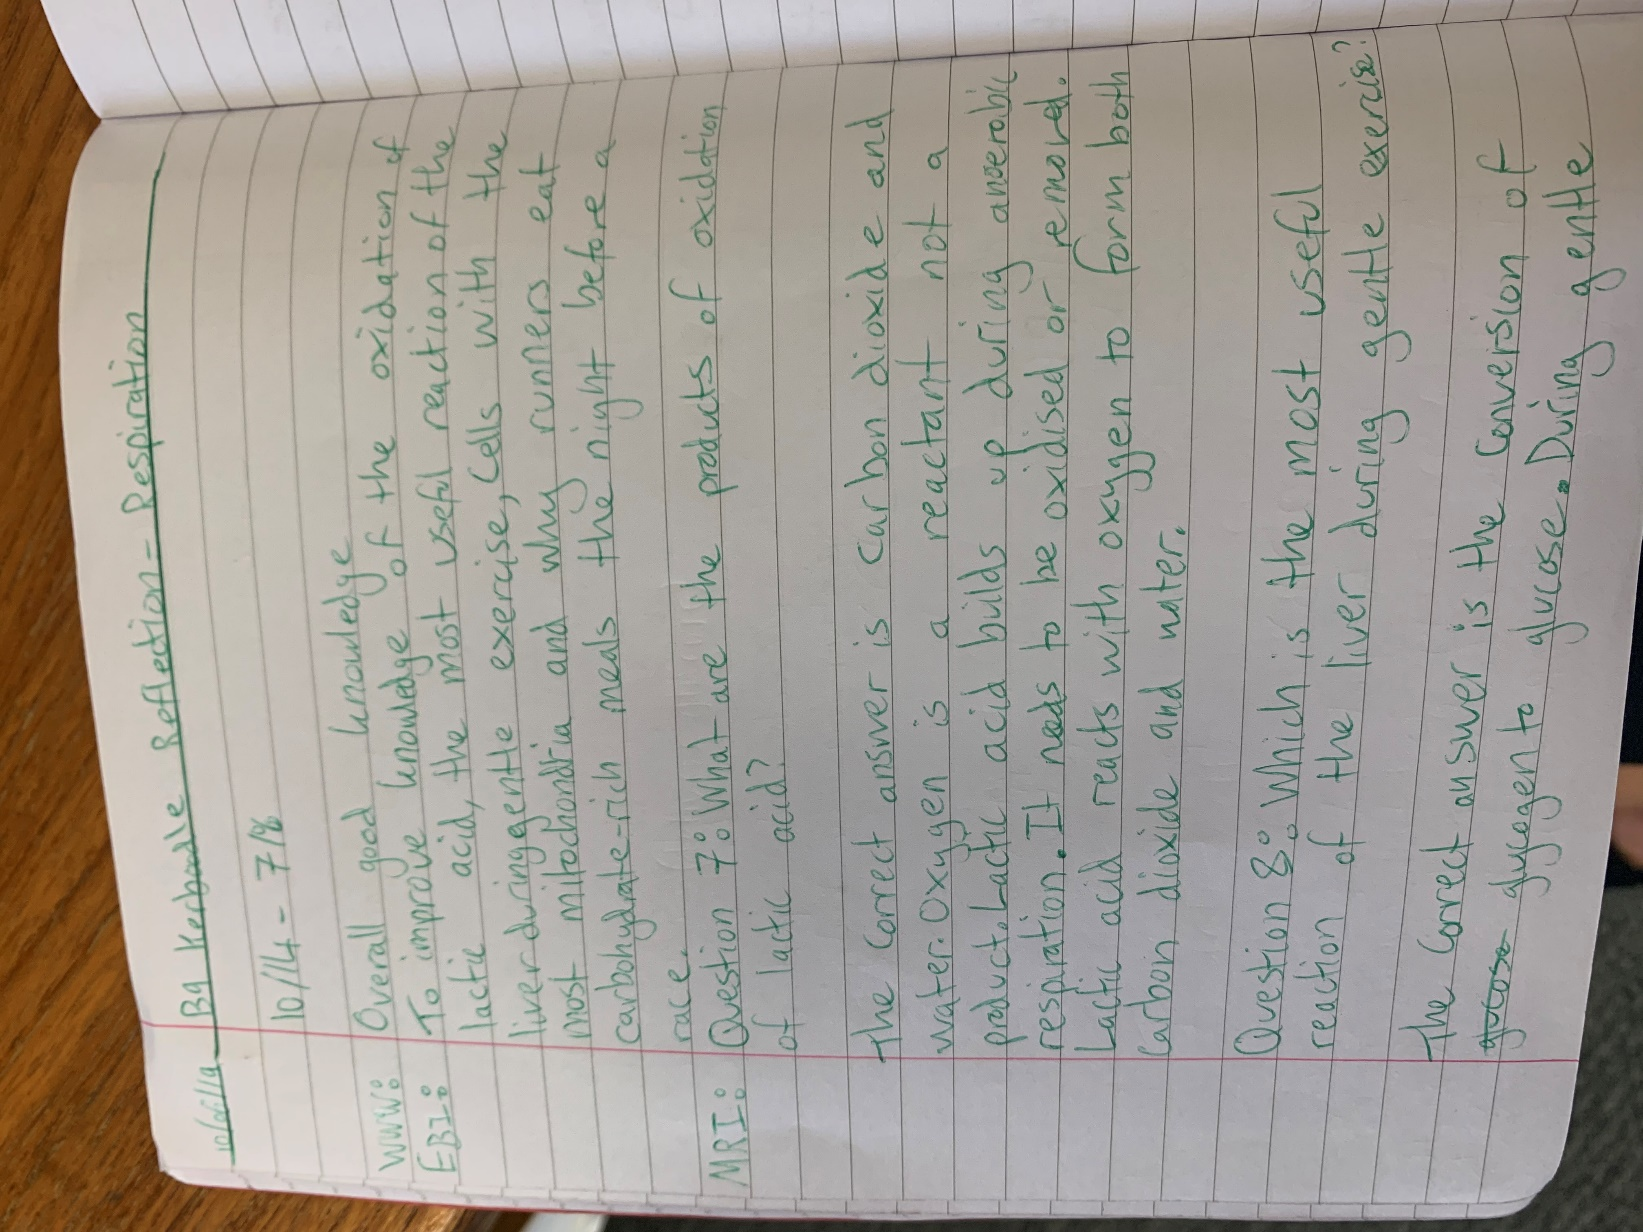 B9 Kerboodle Reflection - Respiration
10/14 - 71%
WWW: Overall good knowledge
EBI: To improve knowledge of the oxidation of
lactic acid, the most useful reaction of the
liver during gentle exercise, cells with the
most mitochondria and why runners eat
carbohydrate-rich meals the night before a
race.
MRI: Question 7: What are the products of oxidation
of lactic acid?
The correct answer is carbon dioxide and
water. Oxygen is a reactant not a
product. Lactic acid builds up during anaerobic
respiration. It needs to be oxidised or removed.
Lactic acid reacts with oxygen to form both
carbon dioxide and water.
Question 8: Which is the most useful
reaction of the liver during gentle exercise?
The correct answer is the conversion of
glycogen to glucose. During gentle